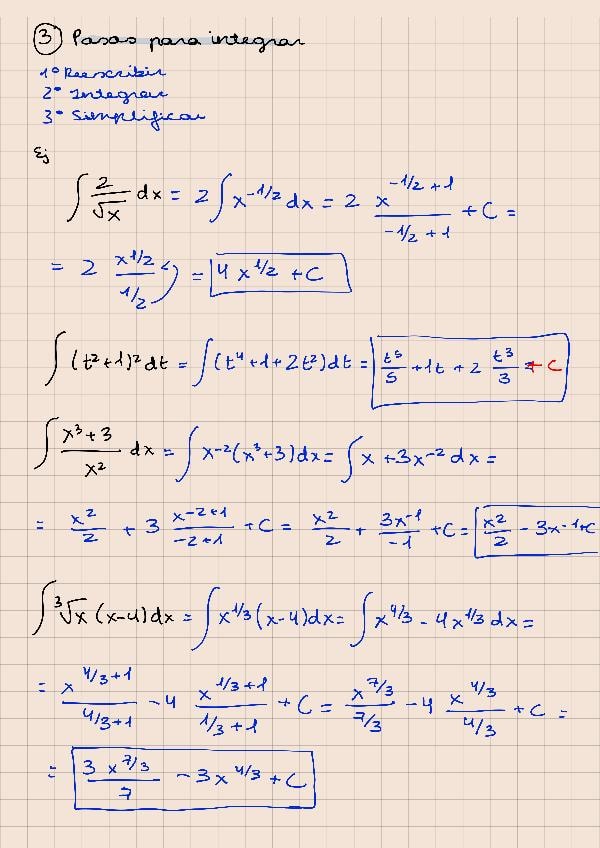 ③ Pasos para integrar
1º Reescribir
2º Integrar
3º Simplificar
Ej
∫ 2/√x dx = 2 ∫ x^(-1/2) dx = 2 x^(-1/2+1)/(-1/2+1) + C =
= 2 x^(1/2)/(1/2) = 4 x^(1/2) + C
∫ (t²+1)² dt = ∫ (t⁴+1+2t²) dt = t⁵/5 + 1t + 2 t³/3 + C
∫ (x³+3)/x² dx = ∫ x⁻² (x³+3) dx = ∫ x + 3x⁻² dx =
= x²/2 + 3 x^(-2+1)/(-2+1) + C = x²/2 + 3x⁻¹/-1 + C = x²/2 - 3x⁻¹ + C
∫ ³√x (x-4) dx = ∫ x^(1/3) (x-4) dx = ∫ x^(4/3) - 4x^(1/3) dx =
= x^(4/3+1)/(4/3+1) - 4 x^(1/3+1)/(1/3+1) + C = x^(7/3)/(7/3) - 4 x^(4/3)/(4/3) + C =
= 3 x^(7/3)/7 - 3x^(4/3) + C